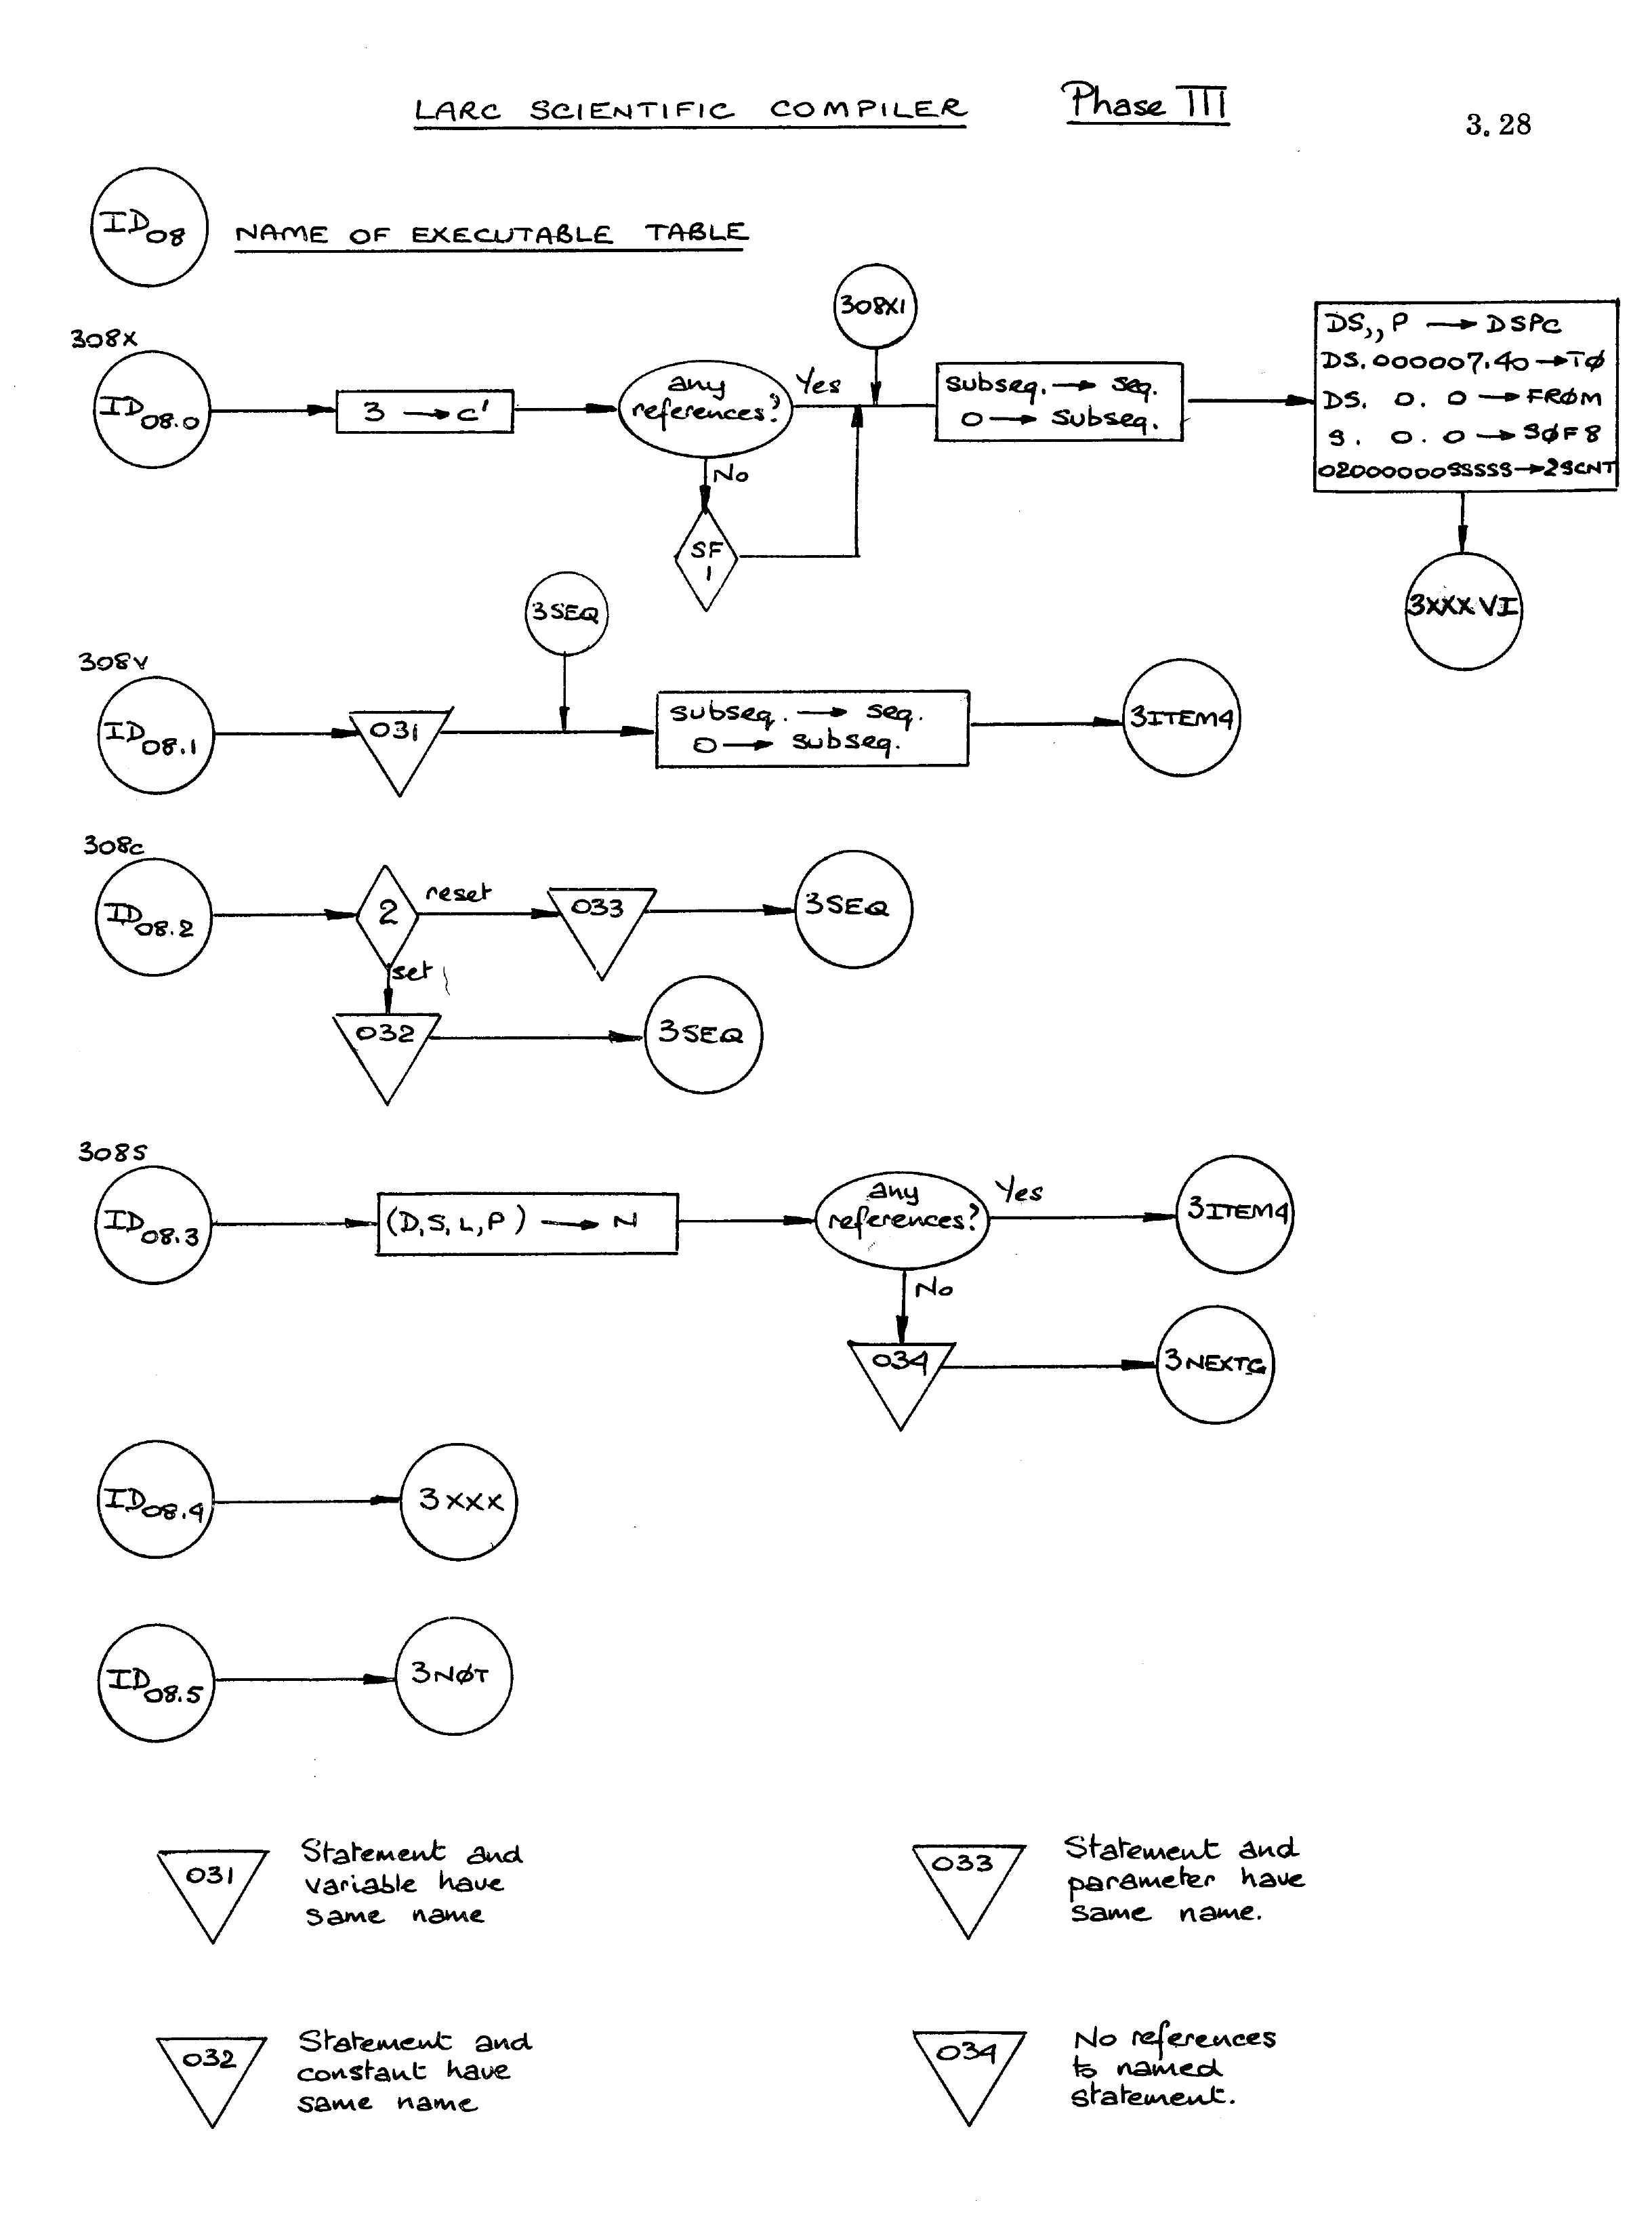 LARC SCIENTIFIC COMPILER Phase III
3.28
ID08
NAME OF EXECUTABLE TABLE
308X
ID08.0
3 → C'
any
references?
Yes
No
SF
1
308X1
subseq. → seq.
0 → subseq.
DS,,P → DSPC
DS.000007.40 → TØ
DS. 0. 0 → FRØM
S. 0. 0 → SØF8
02000000SSSSS → 2SCNT
3XXXVI
3SEQ
308V
ID08.1
031
subseq. → seq.
0 → subseq.
3ITEM4
308C
ID08.2
2
reset
033
3SEQ
set
032
3SEQ
308S
ID08.3
(D,S,L,P) → N
any
references?
Yes
3ITEM4
No
034
3NEXTG
ID08.4
3XXX
ID08.5
3NØT
031
Statement and
variable have
same name
033
Statement and
parameter have
same name.
032
Statement and
constant have
same name
034
No references
to named
statement.